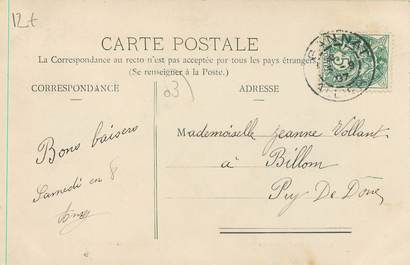 12 t
CARTE POSTALE
La Correspondance au recto n'est pas acceptée par tous les pays étrangers
(Se renseigner à la Poste.)
CORRESPONDANCE
ADRESSE
03
GANNAT
07
5
Bons baisers
Samedi en 8
Mademoiselle Jeanne Vollant
à Billom
Puy De Dôme